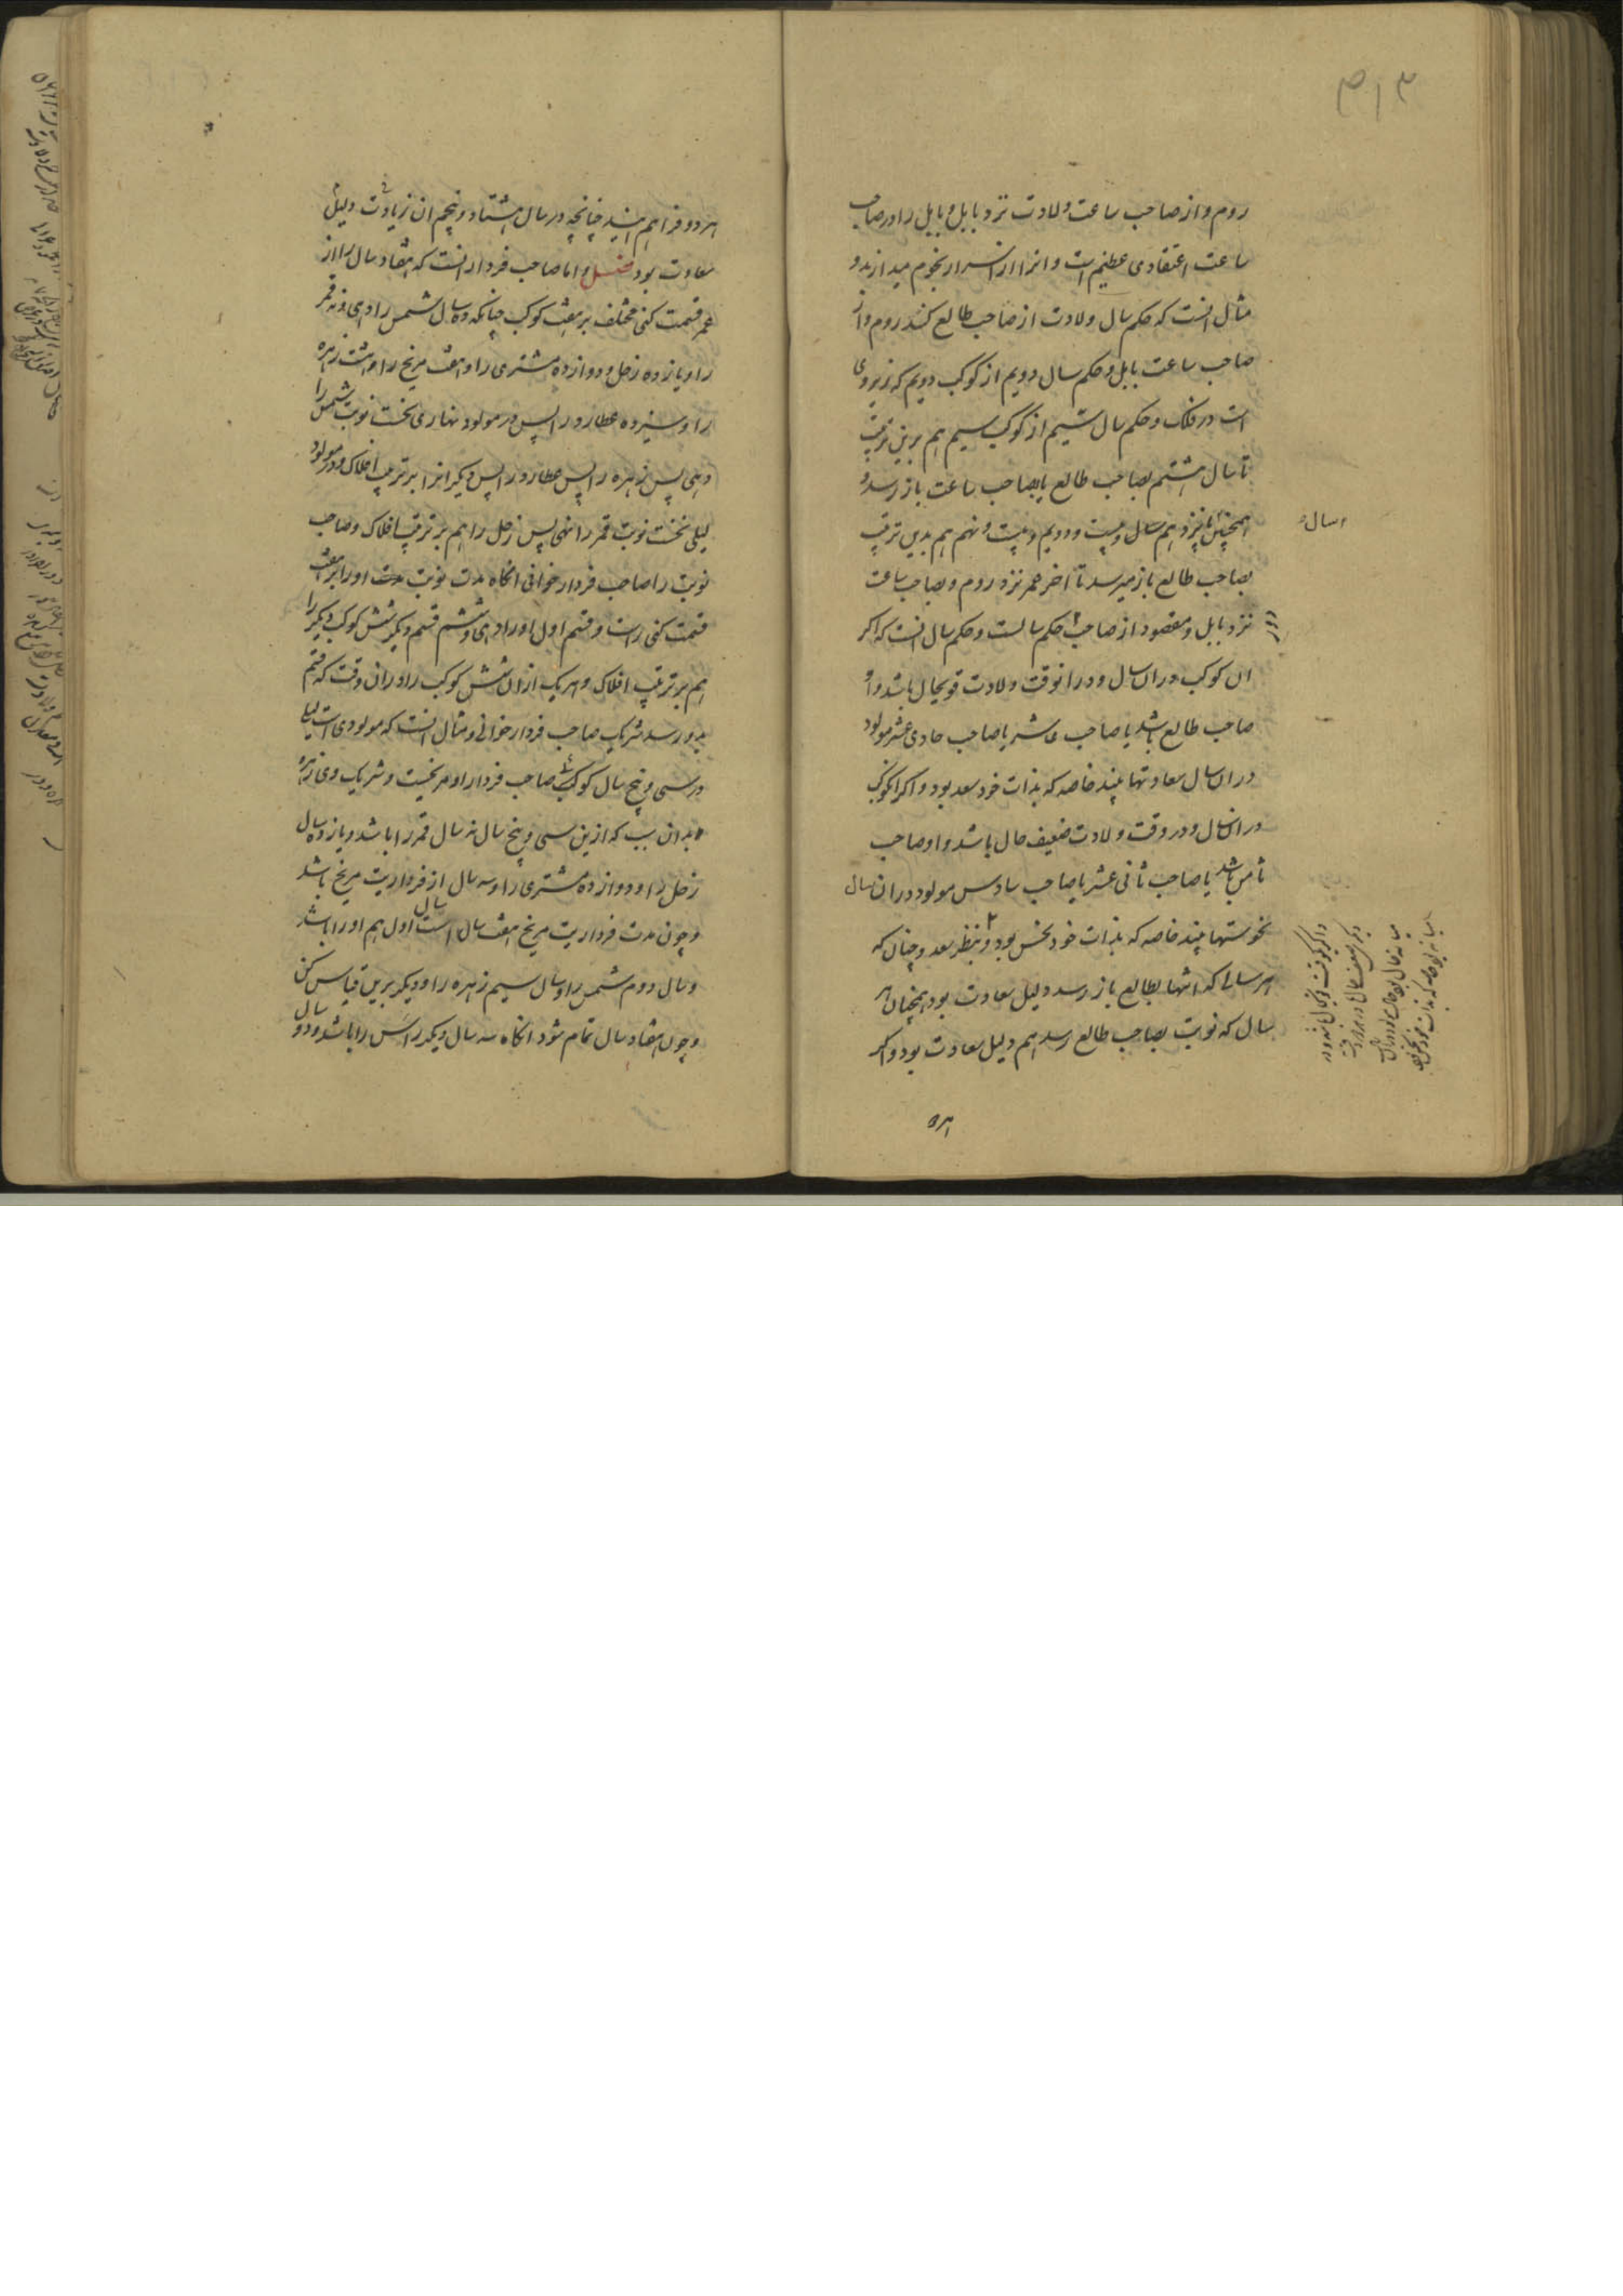 ۳۱۳
روم و از صاحب ساعت ولادت نزد بابل و بابل را در صاحب
ساعت اعتقادی عظیم است و انرا از اسرار نجوم میدارند و
مثال انست که حکم سال ولادت از صاحب طالع کنند روم و از
صاحب ساعت بابل و حکم سال دویم از کوکب دویم که زیر وی
است در فلک و حکم سال سیم از کوکب سیم هم برین ترتیب
تا سال هشتم بصاحب طالع یا بصاحب ساعت باز رسد و
همچنین پانزدهم سال و بیست و دویم و بیست و نهم هم بدین ترتیب
بصاحب طالع باز میرسد تا اخر عمر نزد روم و بصاحب ساعت
نزد بابل و مقصود از صاحب حکم سالست و حکم سال انست که اکر
ان کوکب در ان سال و در انوقت ولادت قویحال باشد و او
صاحب طالع باشد یا صاحب عاشر یا صاحب حادی عشر مولود
در ان سال سعادتها بیند خاصه که بذات خود سعد بود و اکر انکوکب
در ان سال و در وقت ولادت ضعیف حال باشد و او صاحب
ثامن باشد یا صاحب ثانی عشر یا صاحب سادس مولود در ان سال
نحوستها بیند خاصه که بذات خود نحس بود و بنظر سعد و چنان که
هر سالی که انتها بطالع باز رسد دلیل سعادت بود همچنان هر
سال که نوبت بصاحب طالع رسد هم دلیل سعادت بود و اکر
هر دو فراهم ایند چنانچه در سال هشتاد و پنجم ان زیادت دلیل
سعادت بود فصل و اما صاحب فردار انست که هفتاد سال را از
عمر قسمت کنی مختلف بر هفت کوکب چنانکه ده سال شمس را دهی و نه قمر
را و یازده زحل و دوازده مشتری را و هفت مریخ را و هشت زهره
را و سیزده عطارد را پس در مولود نهاری نخست نوبت شمس را
دهی پس زهره را پس عطارد را پس دیکرانرا بر ترتیب افلاک و در مولود
لیلی نخست نوبت قمر را نهی پس زحل را هم بر ترتیب افلاک و صاحب
نوبت را صاحب فردار خوانی انکاه مدت نوبت مدت او را بر هفت
قسمت کنی راست و قسم اول او را دهی و شش قسم دیکر شش کوکب دیکر را
هم بر ترتیب افلاک و هر یک از ان شش کوکب را در ان وقت که قسم
بدو رسد شریک صاحب فردار خوانی و مثال انست که مولودی است لیلی
در سی و پنج سال کوکب صاحب فردار او مریخست و شریک وی زهره
بدان سبب که ازین سی و پنج سال نه سال قمر را باشد و یازده سال
زحل را و دوازده مشتری را و سه سال از فرداریت مریخ باشد
و چون مدت فرداریت مریخ هفت سال است سال اول هم او را باشد
و سال دوم شمس را و سال سیم زهره را و دیکر برین قیاس کن
و چون هفتاد سال تمام شود انکاه سه سال دیکر راس را باشد و دو سال